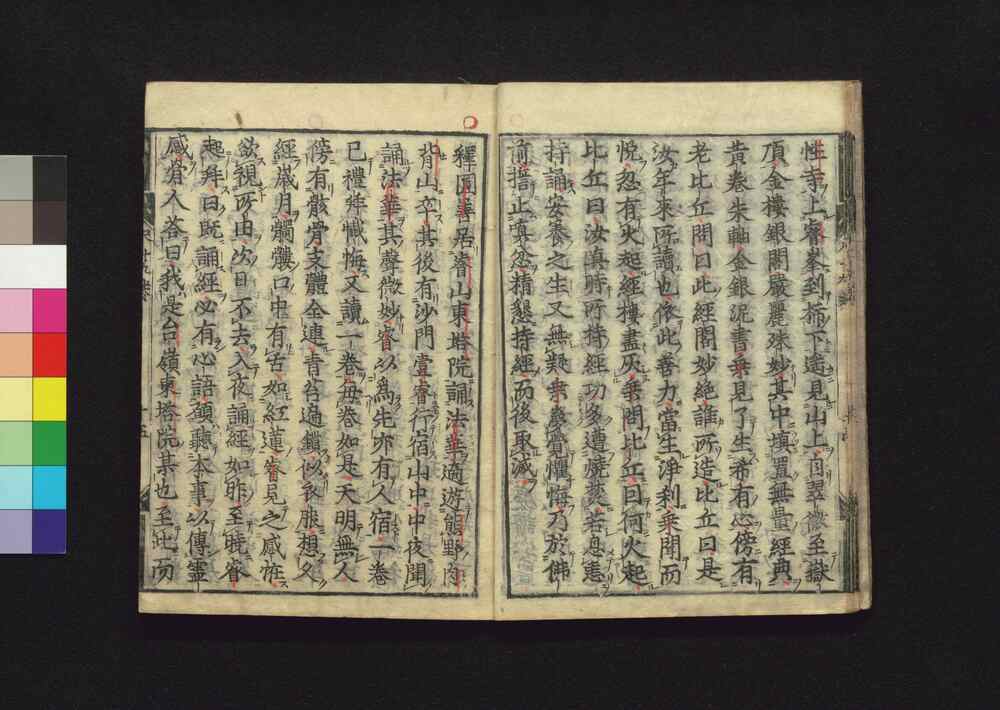 性寺上睿峯到柿下遙見山上自翠微至嶽
頂金樓銀閣嚴麗殊妙其中塡置無量經典
黃卷朱軸金銀泥書乘見了生希有心傍有
老比丘問曰此經閣妙絕誰所造比丘曰是
汝年來所讀也依此善力當生淨刹乘聞而
悅忽有火起經樓盡灰乘問比丘曰何火起
比丘曰汝瞋時所持經功多遭燒燕若息恚
持誦安養之生又無疑乘夢覺懼悔乃於佛
前 止嗔忿精懇持經而後取滅
釋圓善居睿山東塔院誦法華適遊熊野肉
背山卒其後有沙門壹睿行宿山中中夜聞
誦法華其聲微妙睿以爲先亦有人宿一卷
已禮拜懺悔又讀一卷每卷如是天明無人
傍有骸骨支體全連青苔過鑽似衣服想久
經歲月髑髏口中有舌如紅蓮睿見之感恠
欲視所由次日不去入夜誦經如昨至曉睿
起拜曰既誦經必有心語願聽本事以傳靈
感骨人答曰我是台嶺東塔院某也至此而